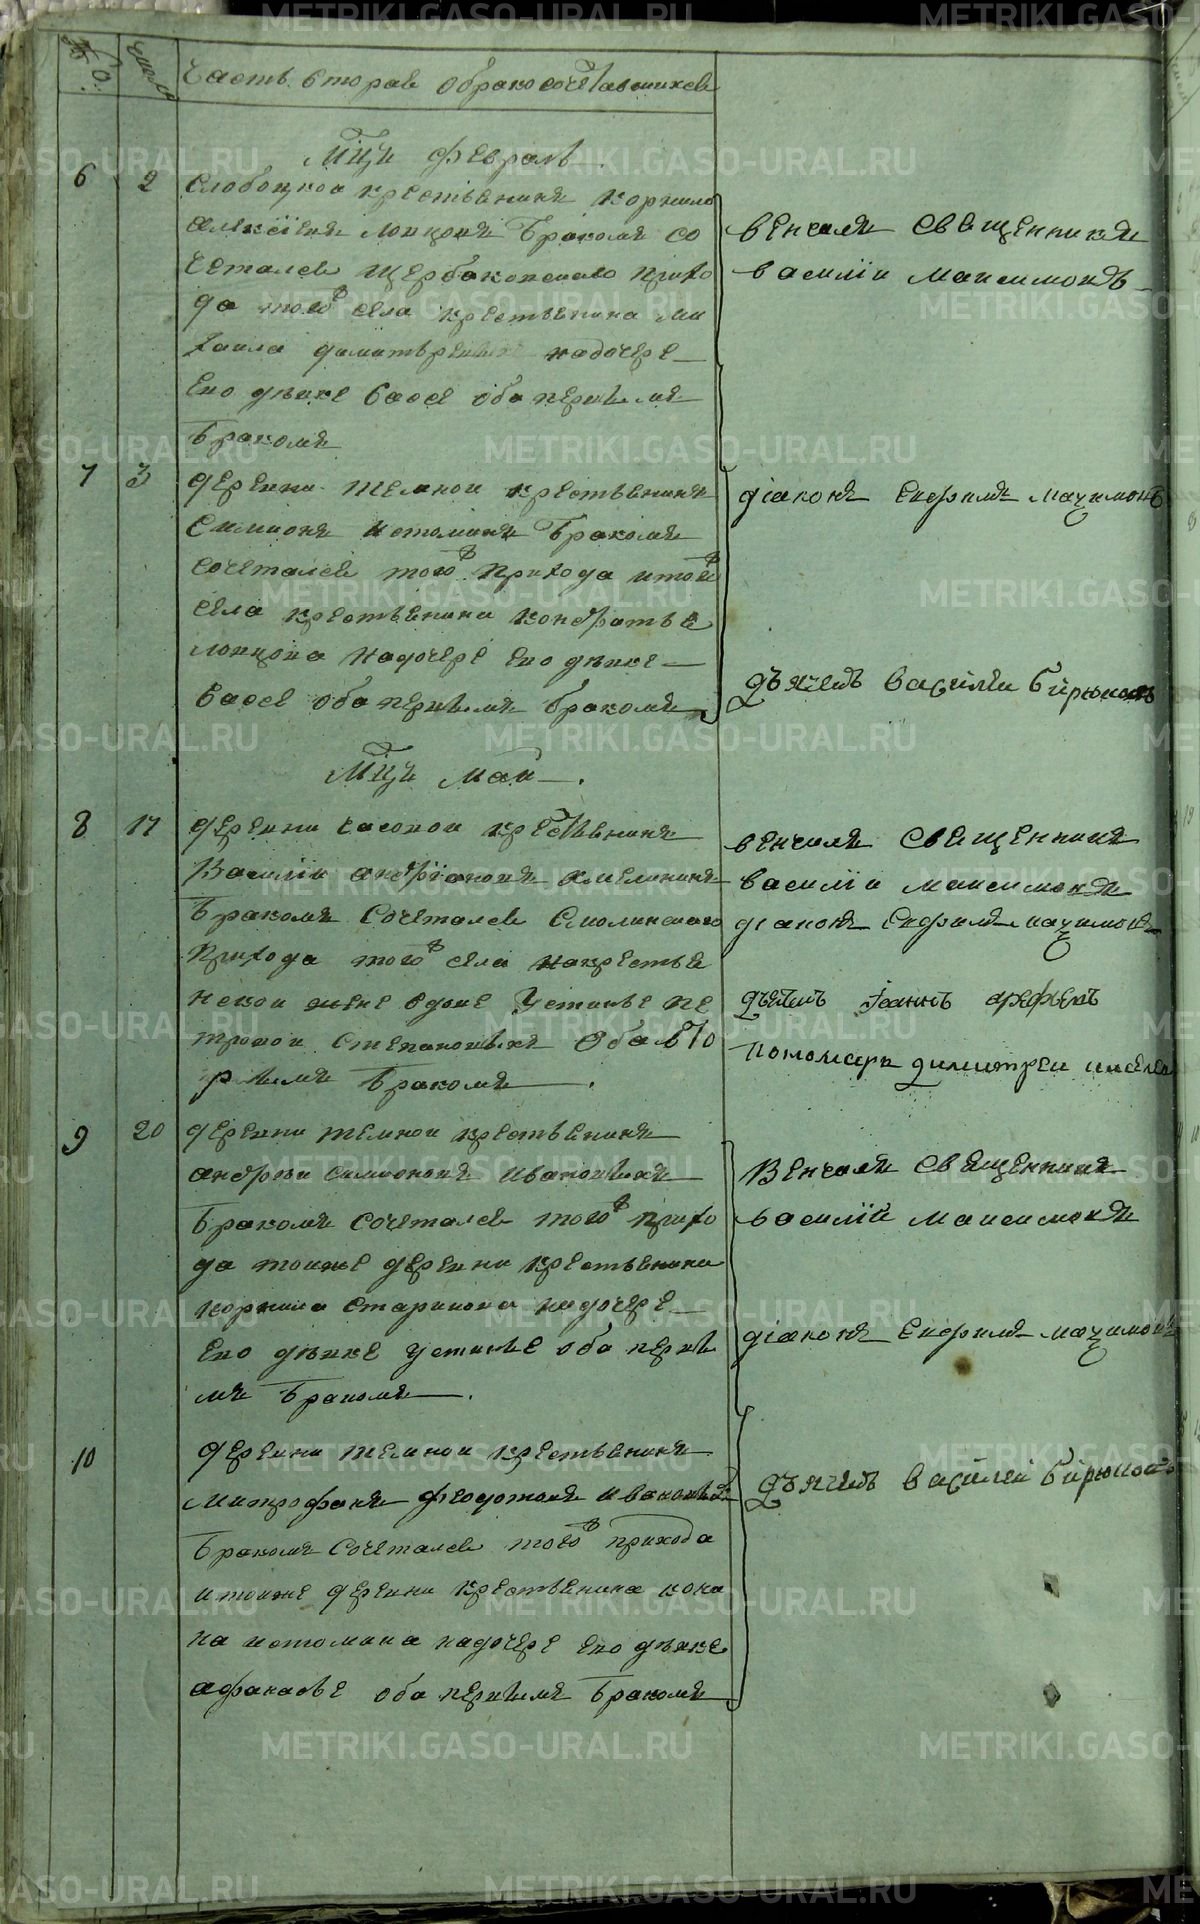 №
Число
Часть вторая о бракосочетавшихся
Мц҃ъ февраль
6 2 Слобоцкой крестьянинъ Корнило
Алексѣевъ Ловцовъ бракомъ со
четался Щербаковскаго прихо
да тогоже села крестьянина Ми
хаила Димитріевыхъ надочере
Его дѣвке Васѣ оба первымъ
бракомъ
венчалъ Священникъ
Василіи Максимовъ
7 3 деревни Темной крестьянинъ
Симионъ Истоминъ бракомъ
сочетался тогоже прихода итогоже
села крестьянина Кондратья
Ловцова надочере Его дѣвке
Васѣ оба первымъ бракомъ
діаконъ Ефремъ Мазимовъ
дьячекъ Василей Бирюковъ
Мц҃ъ май
8 17 деревни Часовой крестьянинъ
Василіи Андріановъ Амелинъ
бракомъ Сочетался Смолинского
Прихода тогоже села накрестья
нской жене вдове Устинье пе
тровой Степановыхъ Оба вто
рымъ бракомъ
венчалъ Священникъ
Василіи Максимовъ
діаконъ Ефремъ Мазимовъ
дьячекъ Іоаннъ Арефьевъ
Пономарь Димитрей
9 20 деревни Темной крестьянинъ
Андреи Симионовъ Ивановыхъ
бракомъ Сочетался тогоже прихо
да тоиже деревни крестьянина
Корнила Старикова надочере
Его дѣвке Устинье оба первы
мъ бракомъ
Венчалъ Священникъ
Василій Максимовъ
діаконъ Ефремъ Мазимовъ
10 деревни Темной крестьянинъ
Митрофанъ Феодотовъ Ивановыхъ
бракомъ Сочетался тогоже прихода
итоиже деревни крестьянина Кона
на Истомина надочере Его дѣвке
Афанасье оба первымъ бракомъ
дьячекъ Василей Бирюковъ
METRIKI.GASO-URAL.RU